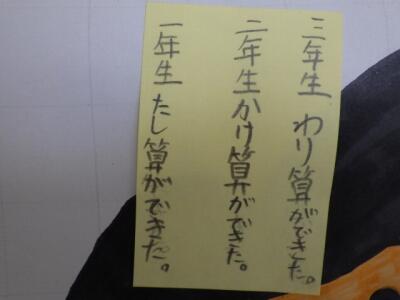 三年生 わり算ができた。
二年生 かけ算ができた。
一年生 たし算ができた。